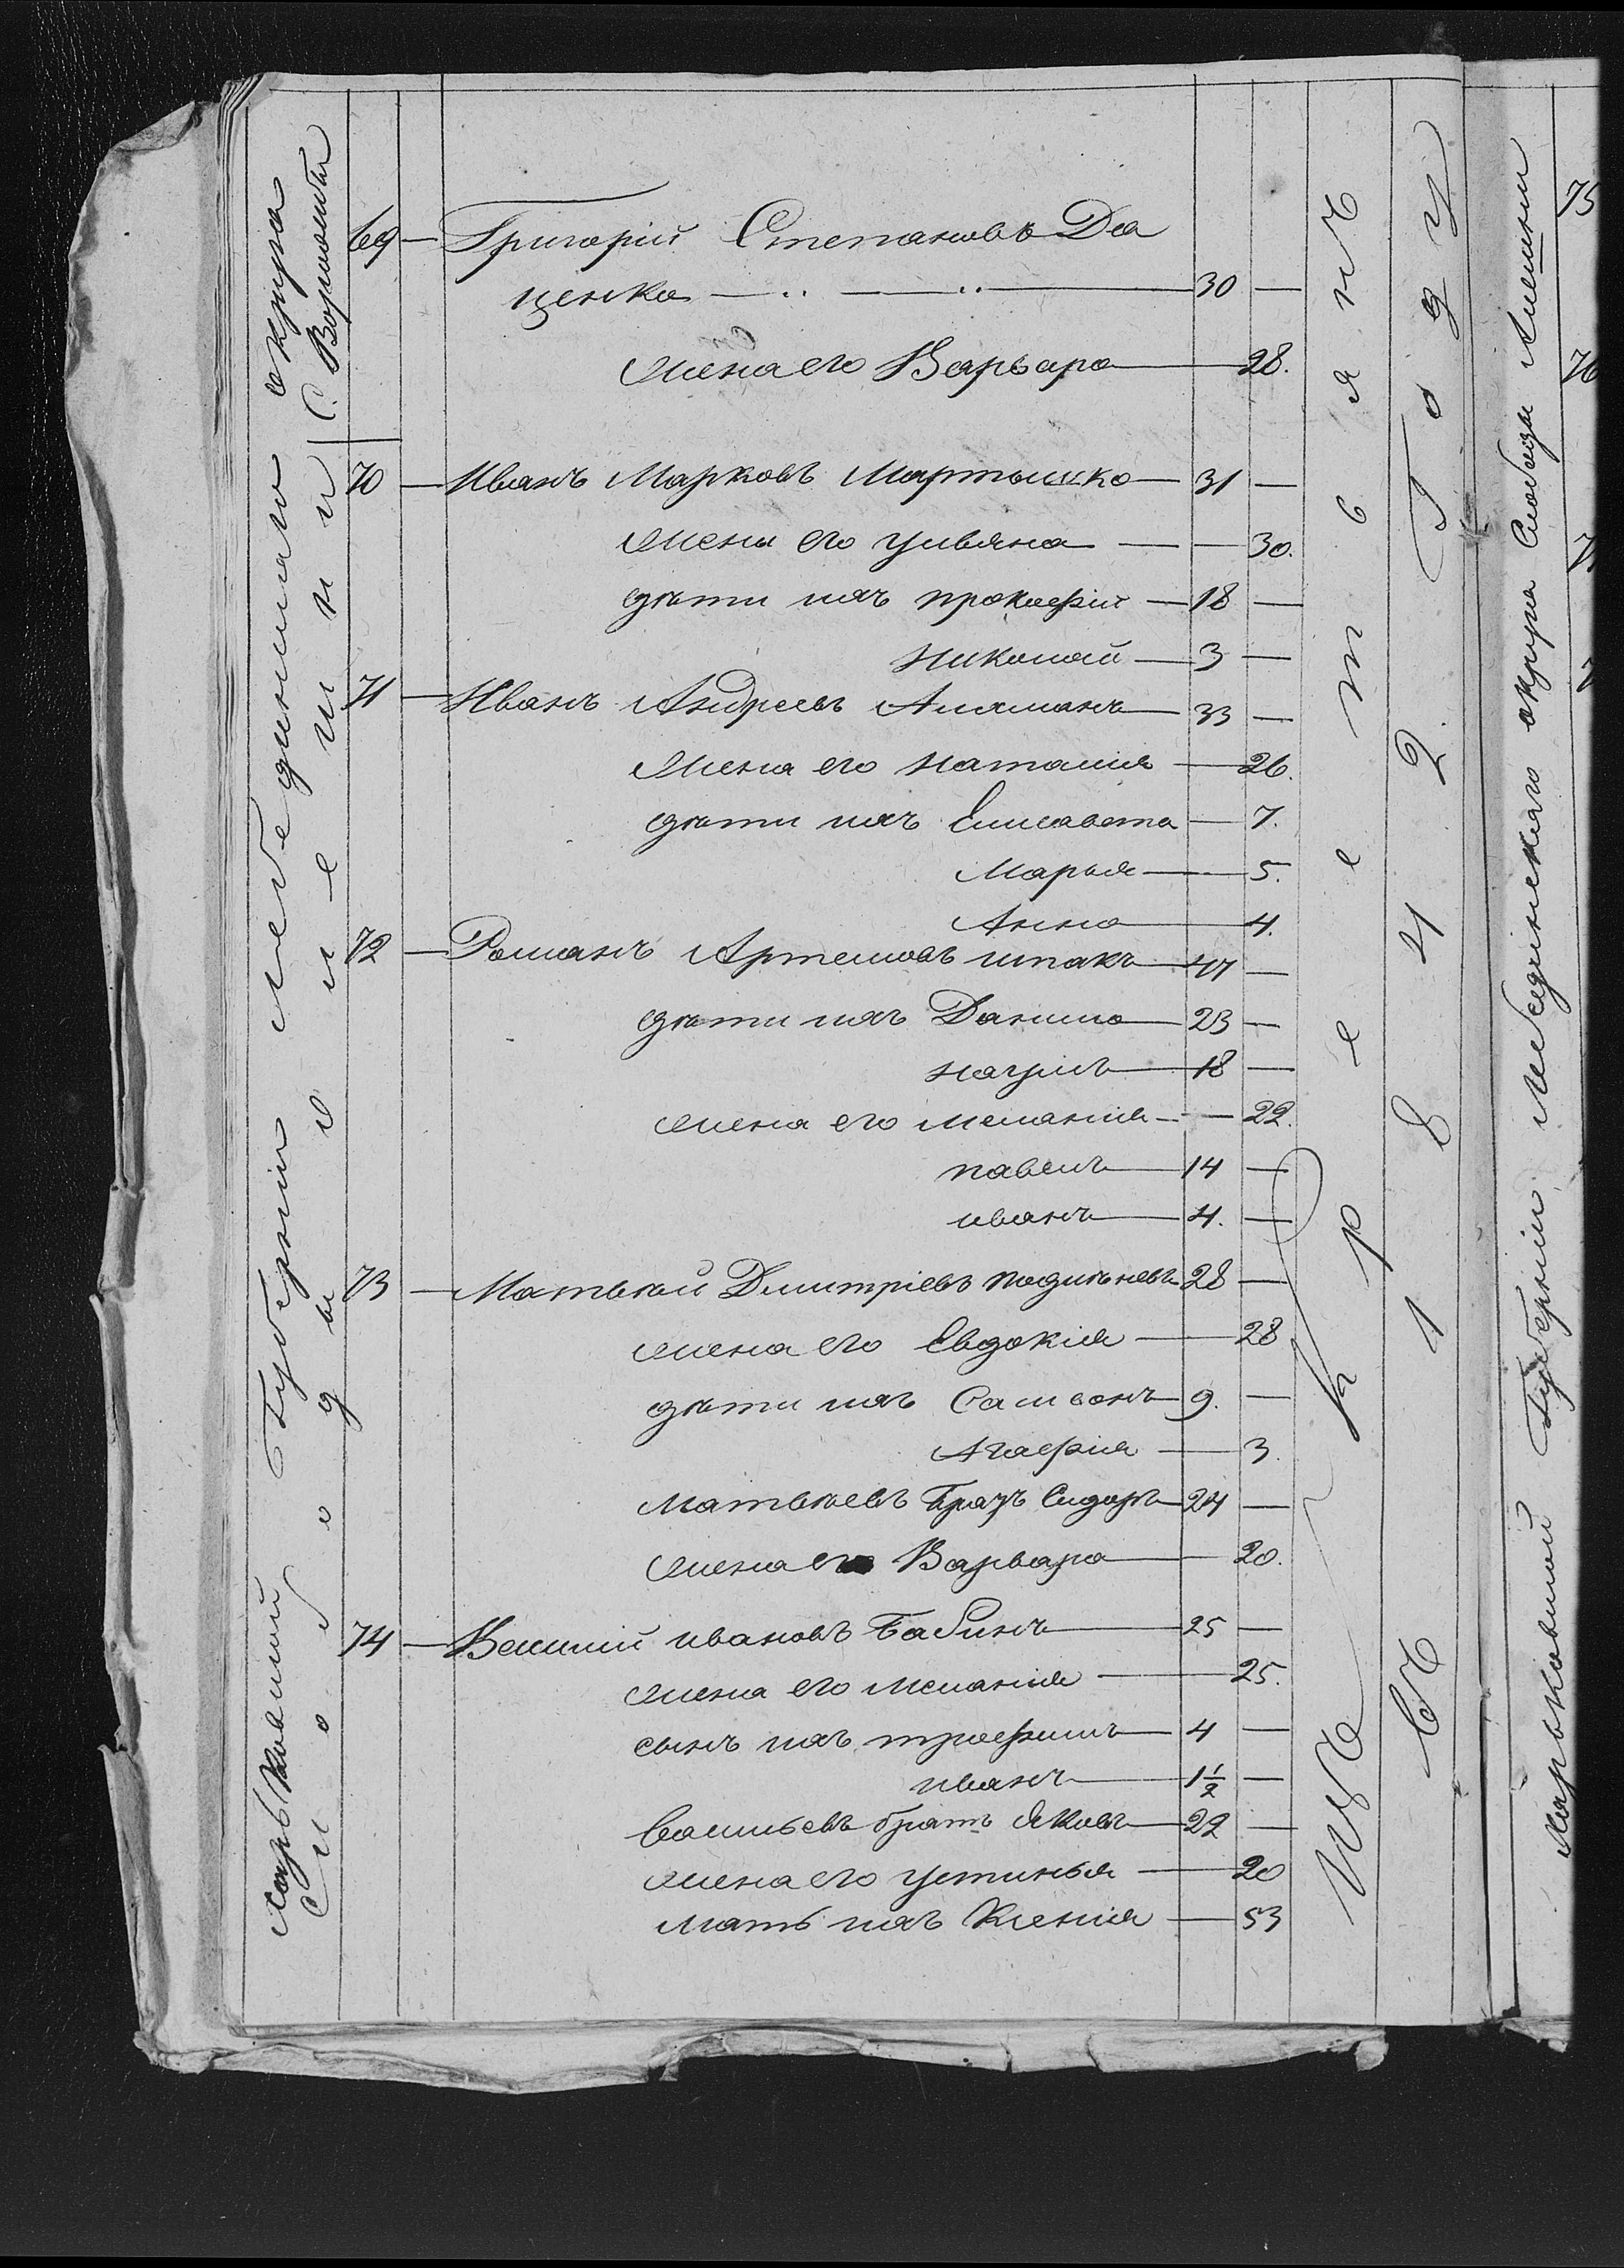 Харьковской Губерніи Лебединскаго округа
Слободы Лешини
С. Ворожба
69 — Григорій Степановъ Да
ценко — 30 —
жена его Варвара — 28.
70 — Иванъ Марковъ Мартышко — 31 —
жена его ульяна — — 30.
дѣти ихъ прокофій — 18 —
николай — 3 —
71 — Иванъ Андреевъ — 33 —
жена его наталія — 26.
дѣти ихъ Елисавета — 7.
Марья — 5.
Анна — 4.
72 — Романъ Артемовъ шпакъ — 47 —
дѣти ихъ Данило — 23 —
наумъ — 18 —
жена его меланія — — 22.
павелъ — 14 —
иванъ — 4. —
73 — Матвѣй Дмитріевъ 28 —
жена его Евдокія — 28
дѣти ихъ Самсонъ — 9. —
Агафія — 3.
Матвѣевъ братъ Сидоръ — 24 —
жена его Варвара — 20.
74 — Василій ивановъ бабичъ — 25 —
жена его меланія — 25.
сынъ ихъ трофимъ — 4 —
иванъ — 1 1/2 —
Васильевъ братъ Яковъ — 22 —
жена его устинья — 20
мать ихъ Ксенія — 53
Изъ крестьянъ
Съ 1842 Году
Харьковской Губерніи Лебединскаго округа Слободы
75
76